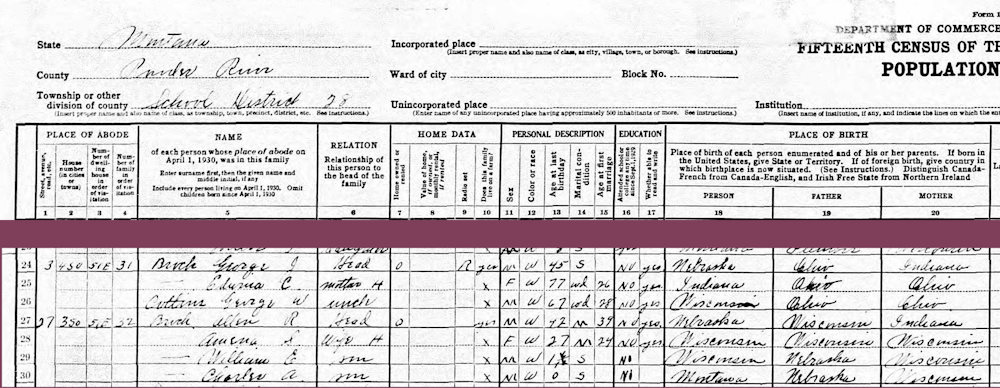 Form 1
DEPARTMENT OF COMMERCE
State Montana Incorporated place
(Insert proper name and also name of class, as city, village, town, or borough. See instructions.)
FIFTEENTH CENSUS OF TH
County Powder River Ward of city Block No.
POPULATION
Township or other division of county School District 28 Unincorporated place Institution
(Insert proper name and also name of class, as township, town, precinct, district, etc. See instructions.) (Enter name of any unincorporated place having approximately 500 inhabitants or more. See instructions.) (Insert name of institution, if any, and indicate the lines on which the en
PLACE OF ABODE NAME RELATION HOME DATA PERSONAL DESCRIPTION EDUCATION PLACE OF BIRTH
Street, avenue, road, etc.
House number (in cities or towns)
Number of dwelling house in order of visitation
Number of family in order of visitation
of each person whose place of abode on April 1, 1930, was in this family
Enter surname first, then the given name and middle initial, if any
Include every person living on April 1, 1930. Omit children born since April 1, 1930
Relationship of this person to the head of the family
Home owned or rented
Value of home, if owned, or monthly rental, if rented
Radio set
Does this family live on a farm?
Sex
Color or race
Age at last birthday
Marital condition
Age at first marriage
Attended school or college any time since Sept. 1, 1929
Whether able to read and write
Place of birth of each person enumerated and of his or her parents. If born in the United States, give State or Territory. If of foreign birth, give country in which birthplace is now situated. (See Instructions.) Distinguish Canada-French from Canada-English, and Irish Free State from Northern Ireland
PERSON FATHER MOTHER
1 2 3 4 5 6 7 8 9 10 11 12 13 14 15 16 17 18 19 20
24 3 450 51E 31 Brock George J Head O R yes M W 45 S No yes Nebraska Ohio Indiana
25 — Edwina C mother H X F W 77 wd 26 No yes Indiana Ohio Ohio
26 George W uncle X M W 67 wd 28 No yes Wisconsin Ohio Ohio
27 27 350 51E 32 Brock Allen R Head O yes M W 42 M 39 No yes Nebraska Wisconsin Indiana
28 — S Wife H X F W 27 M 24 No yes Wisconsin Wisconsin Wisconsin
29 — William E son X M W S No Wisconsin Nebraska Wisconsin
30 — Charles A son X M W 0 S No Montana Nebraska Wisconsin